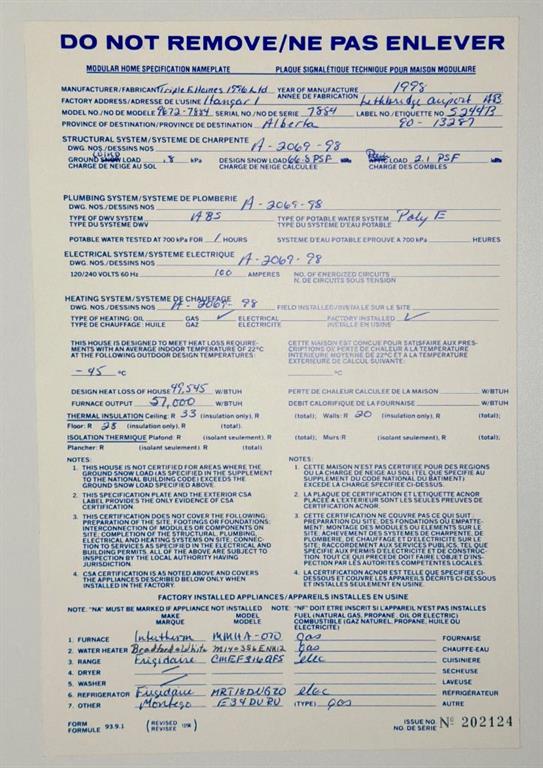 DO NOT REMOVE/NE PAS ENLEVER
MODULAR HOME SPECIFICATION NAMEPLATE PLAQUE SIGNALÉTIQUE TECHNIQUE POUR MAISON MODULAIRE
MANUFACTURER/FABRICANT Triple E Homes 1996 Ltd YEAR OF MANUFACTURE 1998
ANNÉE DE FABRICATION
FACTORY ADDRESS/ADRESSE DE L'USINE Hangar 1 Lethbridge airport AB
MODEL NO./NO DE MODÈLE 9672-7884 SERIAL NO./NO DE SERIE 7884 LABEL NO./ETIQUETTE NO 5244B
PROVINCE OF DESTINATION/PROVINCE DE DESTINATION Alberta 90-13287
STRUCTURAL SYSTEM/SYSTEME DE CHARPENTE
DWG. NOS./DESSINS NOS A-2069-98
GROUND SNOW LOAD .8 kPa DESIGN SNOW LOAD 66.8 PSF LOAD 2.1 PSF
CHARGE DE NEIGE AU SOL CHARGE DE NEIGE CALCULEE CHARGE DES COMBLES
PLUMBING SYSTEM/SYSTEME DE PLOMBERIE
DWG. NOS./DESSINS NOS A-2069-98
TYPE OF DWV SYSTEM ABS TYPE OF POTABLE WATER SYSTEM Poly E
TYPE DU SYSTEME DWV TYPE DU SYSTEME D'EAU POTABLE
POTABLE WATER TESTED AT 700 kPa FOR 1 HOURS SYSTEME D'EAU POTABLE EPROUVE A 700 kPa HEURES
ELECTRICAL SYSTEM/SYSTEME ELECTRIQUE
DWG. NOS./DESSINS NOS A-2069-98
120/240 VOLTS 60 Hz 100 AMPERES NO. OF ENERGIZED CIRCUITS
N. DE CIRCUITS SOUS TENSION
HEATING SYSTEM/SYSTEME DE CHAUFFAGE
DWG. NOS./DESSINS NOS A-2069-98 FIELD INSTALLED/INSTALLE SUR LE SITE
TYPE OF HEATING: OIL GAS ✓ ELECTRICAL FACTORY INSTALLED ✓
TYPE DE CHAUFFAGE: HUILE GAZ ELECTRICITE INSTALLE EN USINE
THIS HOUSE IS DESIGNED TO MEET HEAT LOSS REQUIRE- CETTE MAISON EST CONCUE POUR SATISFAIRE AUX PRES-
MENTS WITH AN AVERAGE INDOOR TEMPERATURE OF 22°C CRIPTIONS DE PERTE DE CHALEUR A LA TEMPERATURE
AT THE FOLLOWING OUTDOOR DESIGN TEMPERATURES: INTERIEURE MOYENNE DE 22°C ET A LA TEMPERATURE
EXTERIEUR DE CALCUL SUIVANTE:
-45 °C °C
DESIGN HEAT LOSS OF HOUSE 49,545 W/BTUH PERTE DE CHALEUR CALCULEE DE LA MAISON W/BTUH
FURNACE OUTPUT 57,000 W/BTUH DEBIT CALORIFIQUE DE LA FOURNAISE W/BTUH
THERMAL INSULATION Ceiling: R 33 (insulation only), R (total); Walls: R 20 (insulation only), R (total);
Floor: R 28 (insulation only), R (total).
ISOLATION THERMIQUE Plafond: R (isolant seulement), R (total); Murs: R (isolant seulement), R (total);
Plancher: R (isolant seulement), R (total).
NOTES: NOTES:
1. THIS HOUSE IS NOT CERTIFIED FOR AREAS WHERE THE 1. CETTE MAISON N'EST PAS CERTIFIEE POUR DES REGIONS
GROUND SNOW LOAD (AS SPECIFIED IN THE SUPPLEMENT OU LA CHARGE DE NEIGE AU SOL (TEL QUE SPECIFIE AU
TO THE NATIONAL BUILDING CODE) EXCEEDS THE SUPPLEMENT DU CODE NATIONAL DU BÂTIMENT)
GROUND SNOW LOAD SPECIFIED ABOVE. EXCEDE LA CHARGE SPECIFIEE CI-DESSUS.
2. THIS SPECIFICATION PLATE AND THE EXTERIOR CSA 2. LA PLAQUE DE CERTIFICATION ET L'ETIQUETTE ACNOR
LABEL PROVIDE THE ONLY EVIDENCE OF CSA PLACEE A L'EXTERIEUR SONT LES SEULES PREUVES DE
CERTIFICATION. CERTIFICATION ACNOR.
3. THIS CERTIFICATION DOES NOT COVER THE FOLLOWING: 3. CETTE CERTIFICATION NE COUVRE PAS CE QUI SUIT:
PREPARATION OF THE SITE; FOOTINGS OR FOUNDATIONS; PREPARATION DU SITE, DES FONDATIONS OU EMPATTE-
INTERCONNECTION OF MODULES OR COMPONENTS ON MENT; MONTAGE DES MODULES OU ELEMENTS SUR LE
SITE; COMPLETION OF THE STRUCTURAL, PLUMBING, SITE; ACHEVEMENT DES SYSTEMES DE CHARPENTE,
ELECTRICAL AND HEATING SYSTEMS ON SITE; CONNEC- DE PLOMBERIE, DE CHAUFFAGE ET D'ELECTRICITE SUR LE
TION TO SERVICES AS SPECIFIED IN THE ELECTRICAL AND SITE; RACCORDEMENT AUX SERVICES, TEL QUE SPECIFIE
BUILDING PERMITS, ALL OF THE ABOVE ARE SUBJECT TO AUX PERMIS D'ELECTRICITE ET DE CONSTRUC-
INSPECTION BY THE LOCAL AUTHORITY HAVING TION. TOUT CE QUI PRECEDE DOIT FAIRE L'OBJET D'INS-
JURISDICTION. PECTION PAR LES AUTORITES COMPETENTES LOCALES.
4. CSA CERTIFICATION IS AS NOTED ABOVE AND COVERS 4. LA CERTIFICATION ACNOR EST TELLE QUE SPECIFIEE CI-
THE APPLIANCES DESCRIBED BELOW ONLY WHEN DESSOUS ET COUVRE LES APPAREILS DECRITS CI-DESSOUS
INSTALLED IN THE FACTORY. ET INSTALLES SEULEMENT EN USINE.
FACTORY INSTALLED APPLIANCES/APPAREILS INSTALLES EN USINE
NOTE. "NA" MUST BE MARKED IF APPLIANCE NOT INSTALLED NOTE: "NF" DOIT ETRE INSCRIT SI L'APPAREIL N'EST PAS INSTALLES
MAKE MODEL FUEL (NATURAL GAS, PROPANE, OIL OR ELECTRIC)
MARQUE MODELE COMBUSTIBLE (GAZ NATUREL, PROPANE, HUILE OU
ELECTRICITE)
1. FURNACE Intertherm MMHA-070 gas FOURNAISE
2. WATER HEATER Bradford White gas CHAUFFE-EAU
3. RANGE Frigidaire elec CUISINIERE
4. DRYER ✓ SÉCHEUSE
5. WASHER ✓ LAVEUSE
6. REFRIGERATOR Frigidaire MRT18DUGZ0 elec RÉFRIGÉRATEUR
7. OTHER Montego E34DURU (TYPE) gas AUTRE
FORM 93.9.1 (REVISED ISSUE NO. Nº 202124
FORMULE REVISÉE) NO. DE SÉRIE